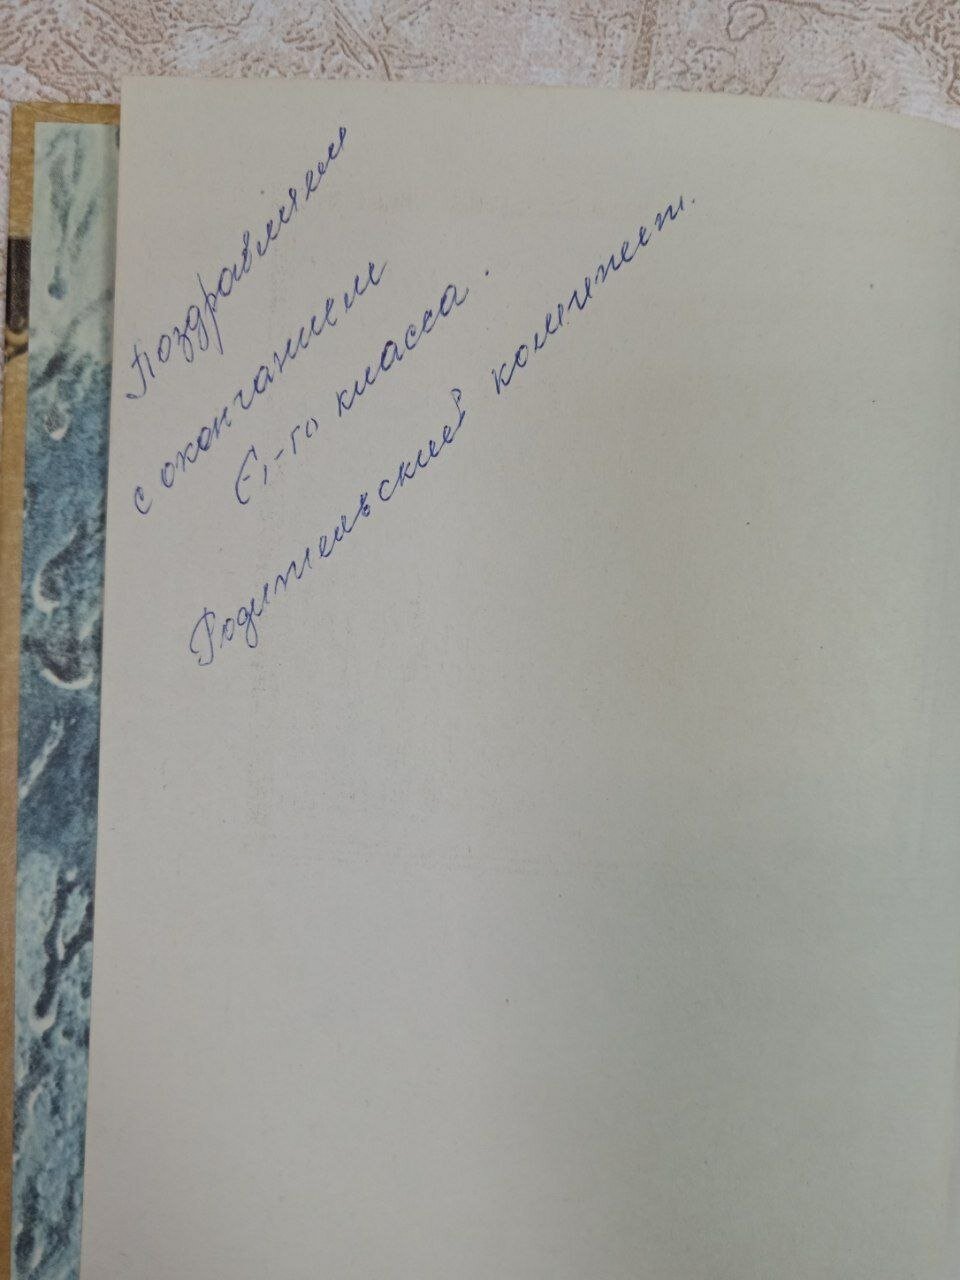 Поздравляем
с окончанием
-го класса.
Родительский комитет.